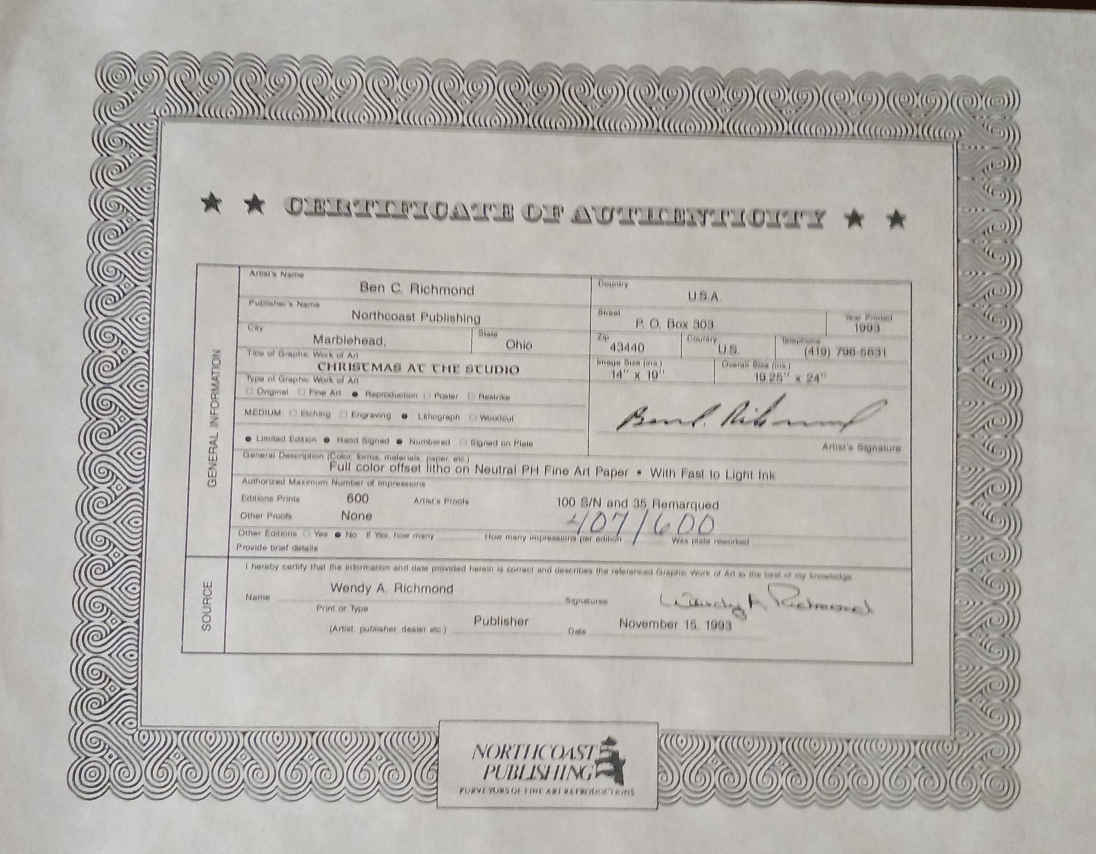 ★ ★ CERTIFICATE OF AUTHENTICITY ★ ★
GENERAL INFORMATION
Artist's Name
Ben C. Richmond
Country
U.S.A.
Publisher's Name
Northcoast Publishing
Street
P. O. Box 303
Year Printed
1993
City
Marblehead,
State
Ohio
Zip
43440
Country
U.S.
Telephone
(419) 798-5631
Title of Graphic Work of Art
CHRISTMAS AT THE STUDIO
Image Size (ins.)
14" x 19"
Overall Size (ins.)
19.25" x 24"
Type of Graphic Work of Art
□ Original □ Fine Art ● Reproduction □ Poster □ Restrike
MEDIUM □ Etching □ Engraving ● Lithograph □ Woodcut
Ben C. Richmond
Artist's Signature
● Limited Edition ● Hand Signed ● Numbered □ Signed on Plate
General Description (Color, forms, materials, paper, etc.)
Full color offset litho on Neutral PH Fine Art Paper • With Fast to Light Ink
Authorized Maximum Number of Impressions
Editions Prints 600 Artist's Proofs 100 S/N and 35 Remarqued
Other Proofs None
407/600
Other Editions □ Yes ● No If Yes, how many How many impressions per edition Was plate reworked
Provide brief details
SOURCE
I hereby certify that the information and data provided herein is correct and describes the referenced Graphic Work of Art to the best of my knowledge.
Name Wendy A. Richmond Signatures Wendy A Richmond
Print or Type
(Artist, publisher, dealer etc.) Publisher Date November 15, 1993
NORTHCOAST
PUBLISHING
PURVEYORS OF FINE ART REPRODUCTIONS